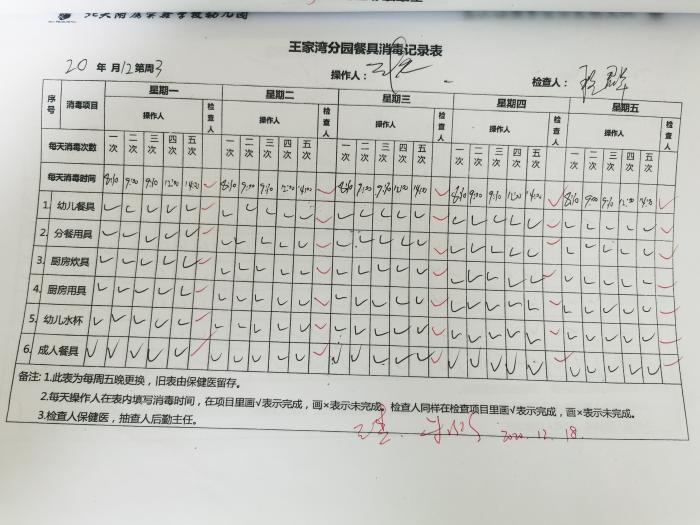 王家湾分园餐具消毒记录表
20 年 月12第周3 操作人： 检查人：
序号 消毒项目 星期一 检查人 星期二 检查人 星期三 检查人 星期四 检查人 星期五 检查人
操作人 操作人 操作人 操作人 操作人
每天消毒次数 一次 二次 三次 四次 五次 一次 二次 三次 四次 五次 一次 二次 三次 四次 五次 一次 二次 三次 四次 五次 一次 二次 三次 四次 五次
每天消毒时间 ✓ ✓ ✓ ✓ ✓
1. 幼儿餐具 ✓ ✓ ✓ ✓ ✓ ✓ ✓ ✓ ✓ ✓ ✓ ✓ ✓ ✓ ✓ ✓ ✓ ✓ ✓ ✓ ✓ ✓ ✓ ✓ ✓ ✓ ✓ ✓ ✓ ✓
2. 分餐用具 ✓ ✓ ✓ ✓ ✓ ✓ ✓ ✓ ✓ ✓ ✓ ✓ ✓ ✓ ✓ ✓ ✓ ✓ ✓ ✓ ✓ ✓ ✓ ✓ ✓ ✓ ✓ ✓ ✓ ✓
3. 厨房炊具 ✓ ✓ ✓ ✓ ✓ ✓ ✓ ✓ ✓ ✓ ✓ ✓ ✓ ✓ ✓ ✓ ✓ ✓ ✓ ✓ ✓ ✓ ✓ ✓ ✓ ✓ ✓ ✓ ✓ ✓
4. 厨房用具 ✓ ✓ ✓ ✓ ✓ ✓ ✓ ✓ ✓ ✓ ✓ ✓ ✓ ✓ ✓ ✓ ✓ ✓ ✓ ✓ ✓ ✓ ✓ ✓ ✓ ✓ ✓ ✓ ✓ ✓
5. 幼儿水杯 ✓ ✓ ✓ ✓ ✓ ✓ ✓ ✓ ✓ ✓ ✓ ✓ ✓ ✓ ✓ ✓ ✓ ✓ ✓ ✓ ✓ ✓ ✓ ✓ ✓ ✓ ✓ ✓ ✓ ✓
6. 成人餐具 ✓ ✓ ✓ ✓ ✓ ✓ ✓ ✓ ✓ ✓ ✓ ✓ ✓ ✓ ✓ ✓ ✓ ✓ ✓ ✓ ✓ ✓ ✓ ✓ ✓ ✓ ✓ ✓ ✓ ✓
备注: 1.此表为每周五晚更换，旧表由保健医留存。
2.每天操作人在表内填写消毒时间，在项目里画√表示完成，画×表示未完成。检查人同样在检查项目里画√表示完成，画×表示未完成。
3.检查人保健医，抽查人后勤主任。
2020.12.18.